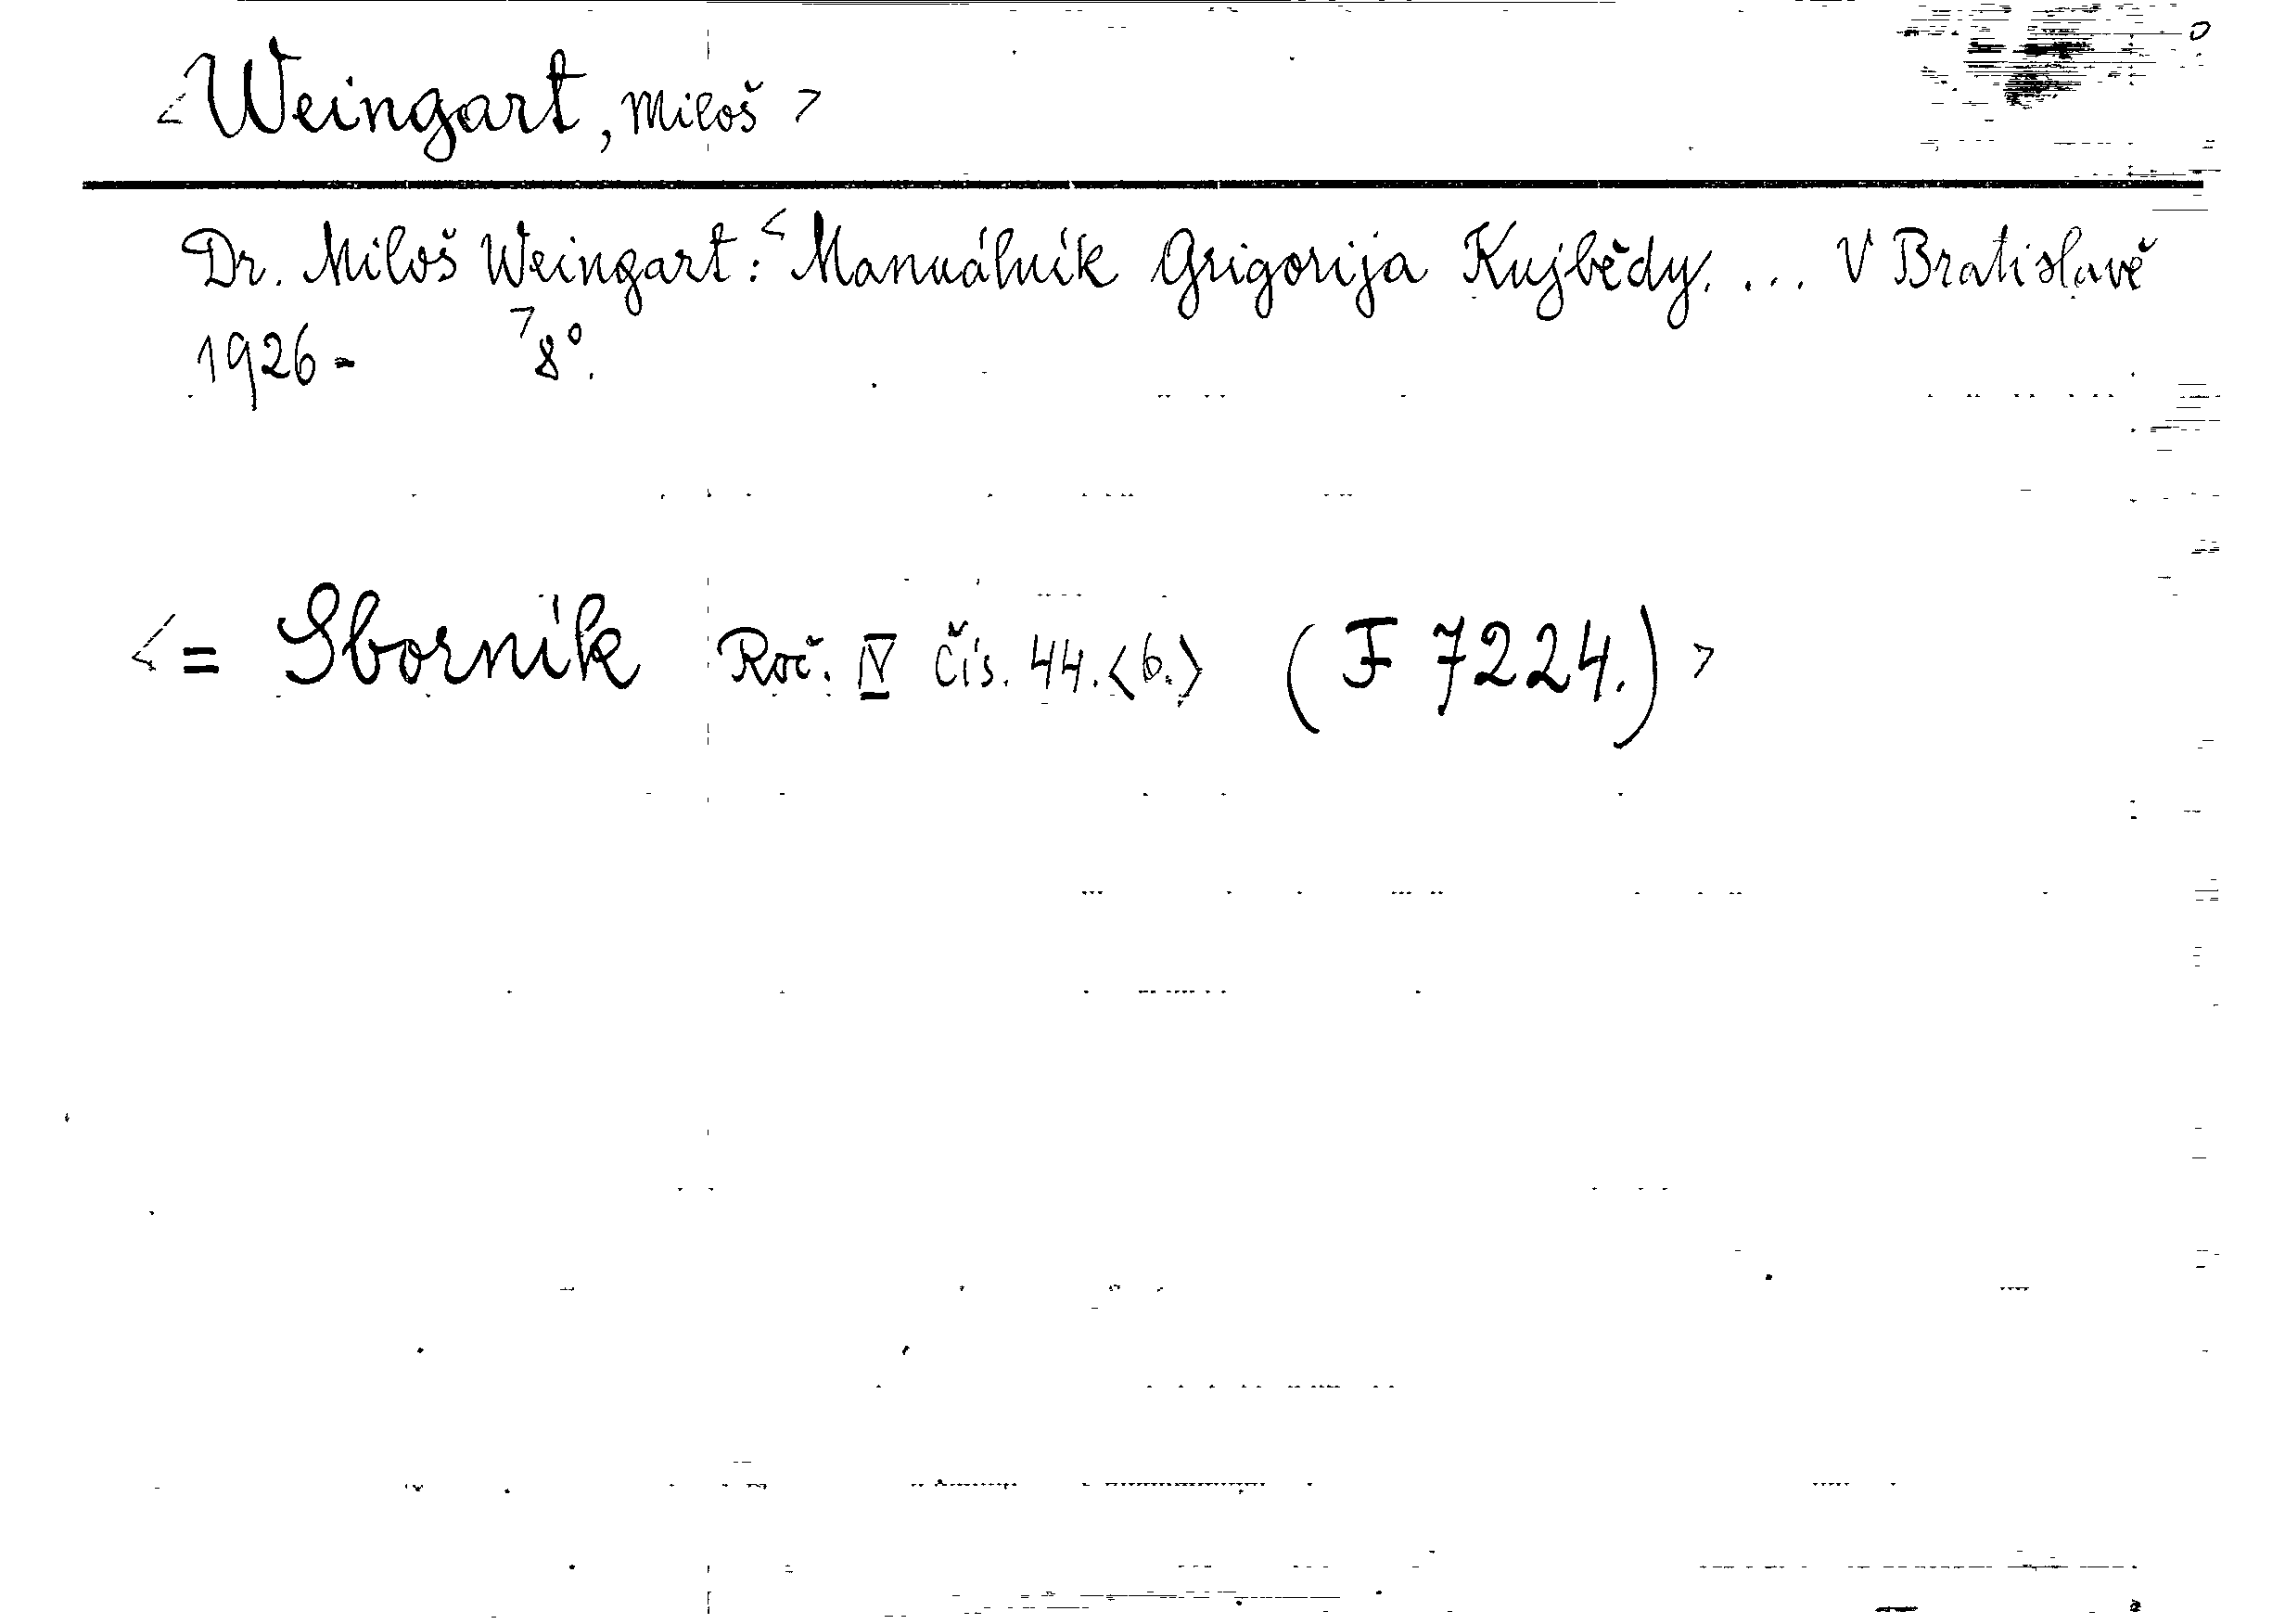 <Weingart, Miloš>
Dr. Miloš Weingart: <Manuálník Grigorija Kujbědy. ... V Bratislavě
1926- > 8°.
<= Sborník Roč. IV Čís. 44.<6.> (F 7224.)>